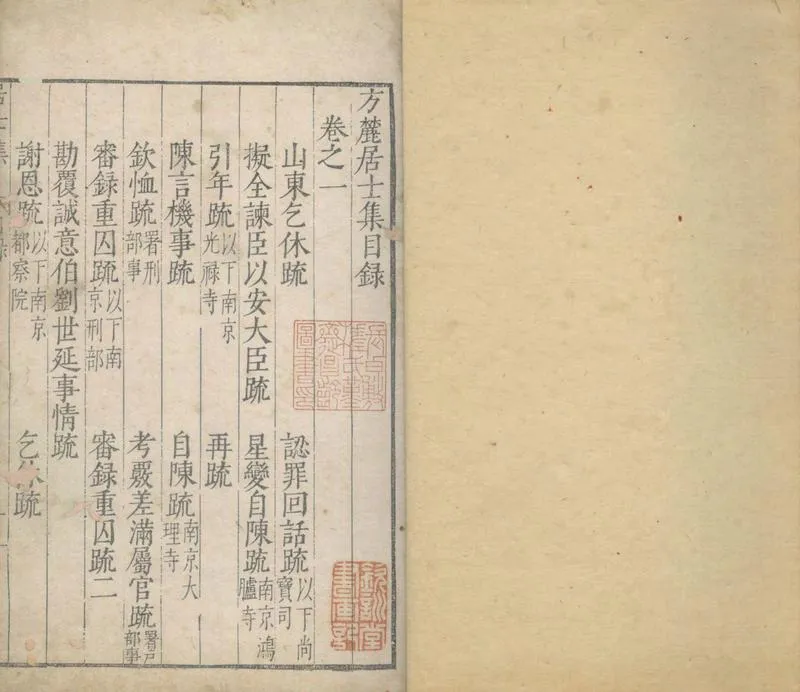 方麓居士集目録
卷之一
山東乞休疏 認罪回話疏以下尚寶司
擬全諫臣以安大臣疏 星變自陳疏南京鴻臚寺
引年疏以下南京光禄寺 再疏
陳言機事疏 自陳疏南京大理寺
欽恤疏署刑部事 考覈差滿屬官疏署戸部事
審録重囚疏以下南京刑部 審録重囚疏二
勘覆誠意伯劉世延事情疏
謝恩疏以下南京都察院 乞休疏
居士集 目録